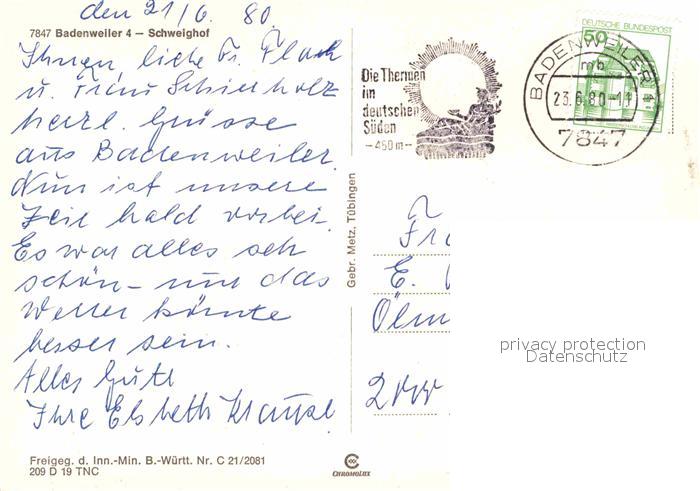 den 21/6. 80.
7847 Badenweiler 4 – Schweighof
Ihnen liebe Fr. Flach
u. Frau Schierholz
herzl. Grüsse
aus Badenweiler.
Nun ist unsere
Zeit bald vorbei.
Es war alles sehr
schön – nur das
Wetter könnte
besser sein.
Alles Gute
Ihre Elsbeth Krause
Freigeg. d. Inn.-Min. B.-Württ. Nr. C 21/2081
209 D 19 TNC
Gebr. Metz, Tübingen
CHROMOLUX
Die Thermen
im
deutschen
Süden
– 450 m –
BADENWEILER 1
mb
23.6.80-11
7847
DEUTSCHE BUNDESPOST
50
Fr
E.
privacy protection
Datenschutz